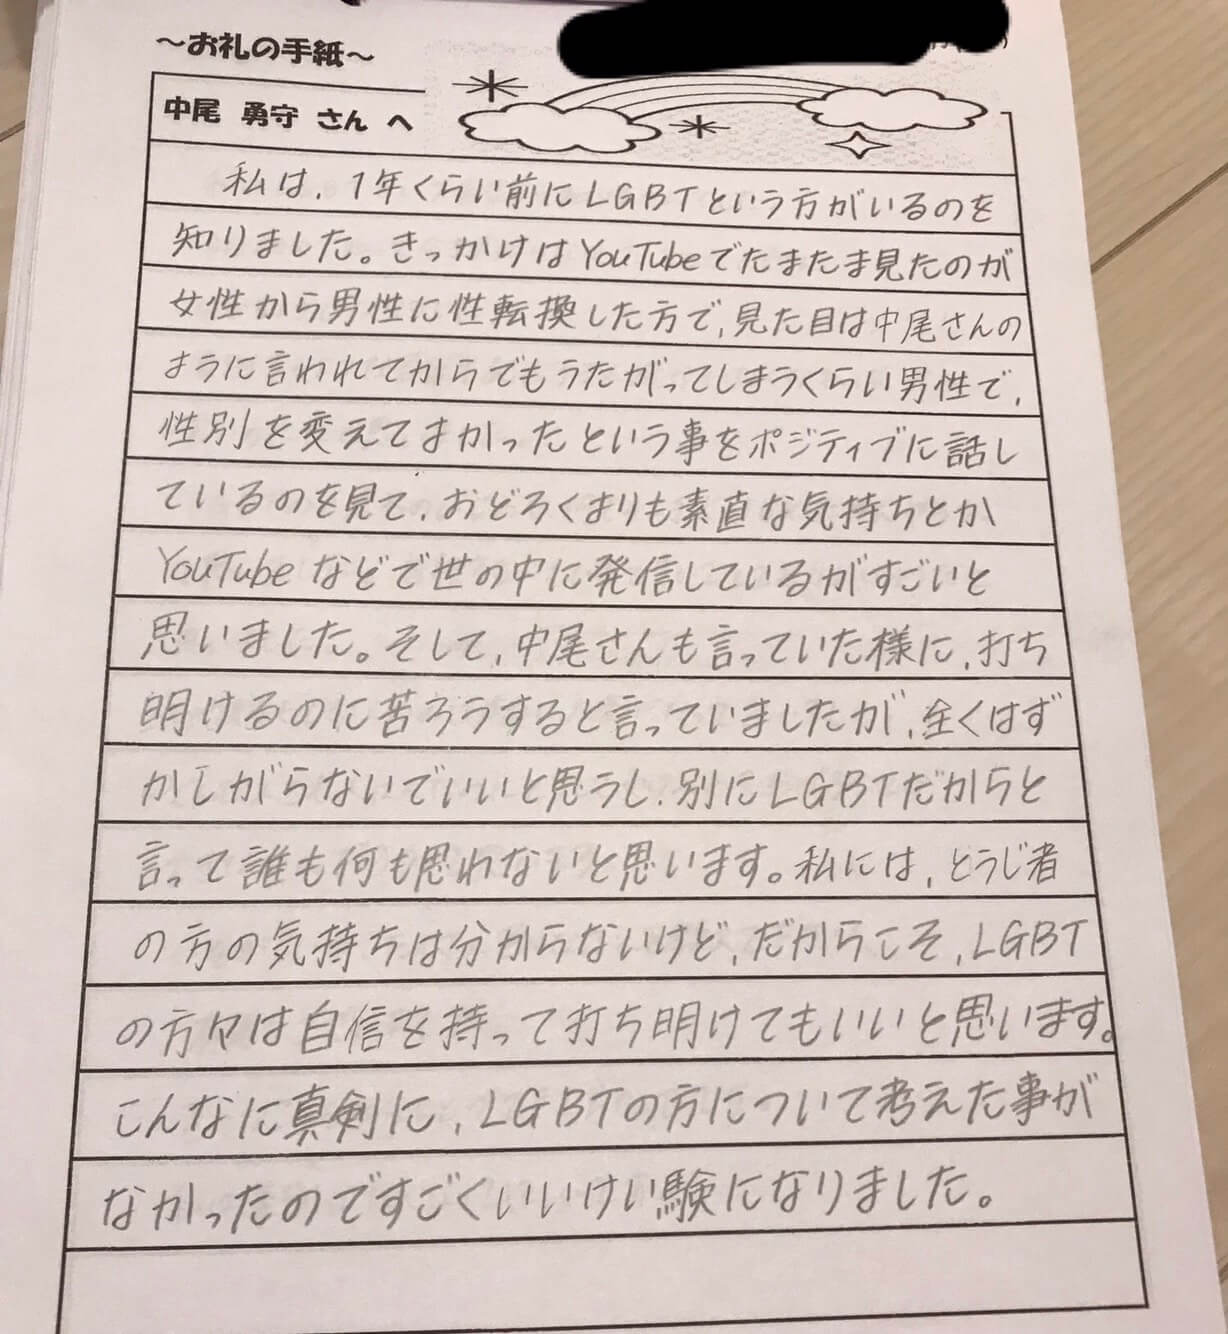 ～お礼の手紙～
中尾 勇守 さん へ
私は、1年くらい前にLGBTという方がいるのを
知りました。きっかけはYouTubeでたまたま見たのが
女性から男性に性転換した方で、見た目は中尾さんの
ように言われてからでもうたがってしまうくらい男性で、
性別を変えてよかったという事をポジティブに話し
ているのを見て、おどろくよりも素直な気持ちとか
YouTubeなどで世の中に発信しているがすごいと
思いました。そして、中尾さんも言っていた様に、打ち
明けるのに苦ろうすると言っていましたが、全くはず
かしがらないでいいと思うし、別にLGBTだからと
言って誰も何も思れないと思います。私には、とうじ者
の方の気持ちは分からないけど、だからこそ、LGBT
の方々は自信を持って打ち明けてもいいと思います。
こんなに真剣に、LGBTの方について考えた事が
なかったのですごくいいけい験になりました。